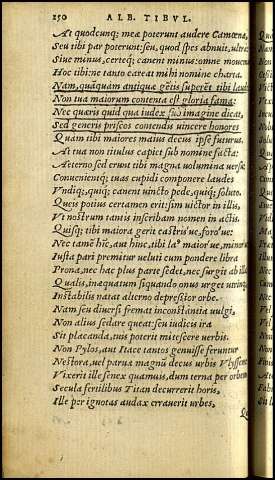 150 ALB. TIBVL.
At quodcunq; meæ poterunt audere Camœnæ,
Seu tibi par poterunt: seu, quod spes abnuit, ultra:
Siue minus, certeq; canent minus: omne mouemus
Hoc tibi: ne tanto careat mihi nomine charta.
Nam, quãquam antiquæ gētis superēt tibi laudes,
Non tua maiorum contenta est gloria fama:
Nec quæris quid quæ index sub imagine dicat,
Sed generis priscos contendis uincere honores
Quam tibi maiores maius decus ipse futuris.
At tua non titulus capiet sub nomine facta:
Aeterno sed erunt tibi magna uolumina uersu:
Conuenientq; tuas cupidi componere laudes
Vndiq; quiq; canent uincto pede, quiq; soluto.
Queis potius certamen erit: sim uictor in illis,
Vt nostrum tantis inscribam nomen in actis.
Quisq; tibi maiora gerit castrîs'ue, foro'ue:
Nec tamē hîc, aut hinc, tibi laꝰ maior'ue, minor'ue
Iusta pari premitur ueluti cum pondere libra
Prona, nec hac plus parte sedet, nec surgit ab illa
Qualis, inæquatum siquando onus urget utrinq;
Instabilis natat alterno depressior orbe.
Nam seu diuersi fremat inconstãtia uulgi,
Non alius sedare queat: seu iudicis ira
Sit placanda, tuis poterit mitescere uerbis.
Non Pylos, aut Itace tantos genuisse feruntur
Nestora, uel paruæ magnũ decus urbis Vlyssem:
Vixerit ille senex quamuis, dum terna per orbem
Secula fertilibus Titan decurrerit horis,
Ille per ignotas audax errauerit urbes,